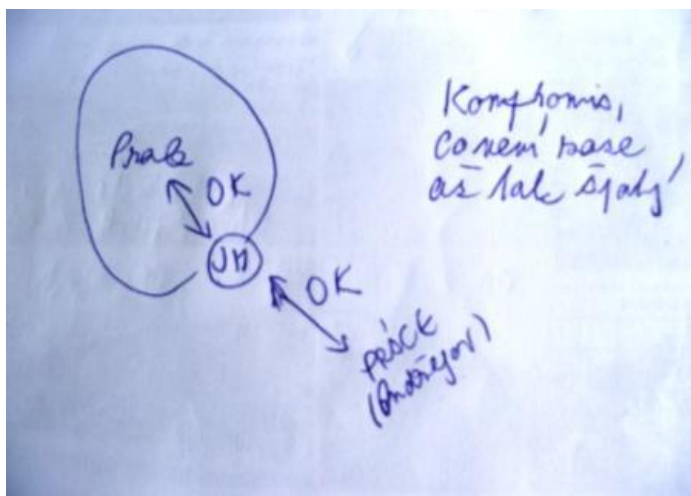 Praha
OK
JM
OK
PRÁCE
(Ondřejov)
Kompromis,
co není zase
až tak špatný